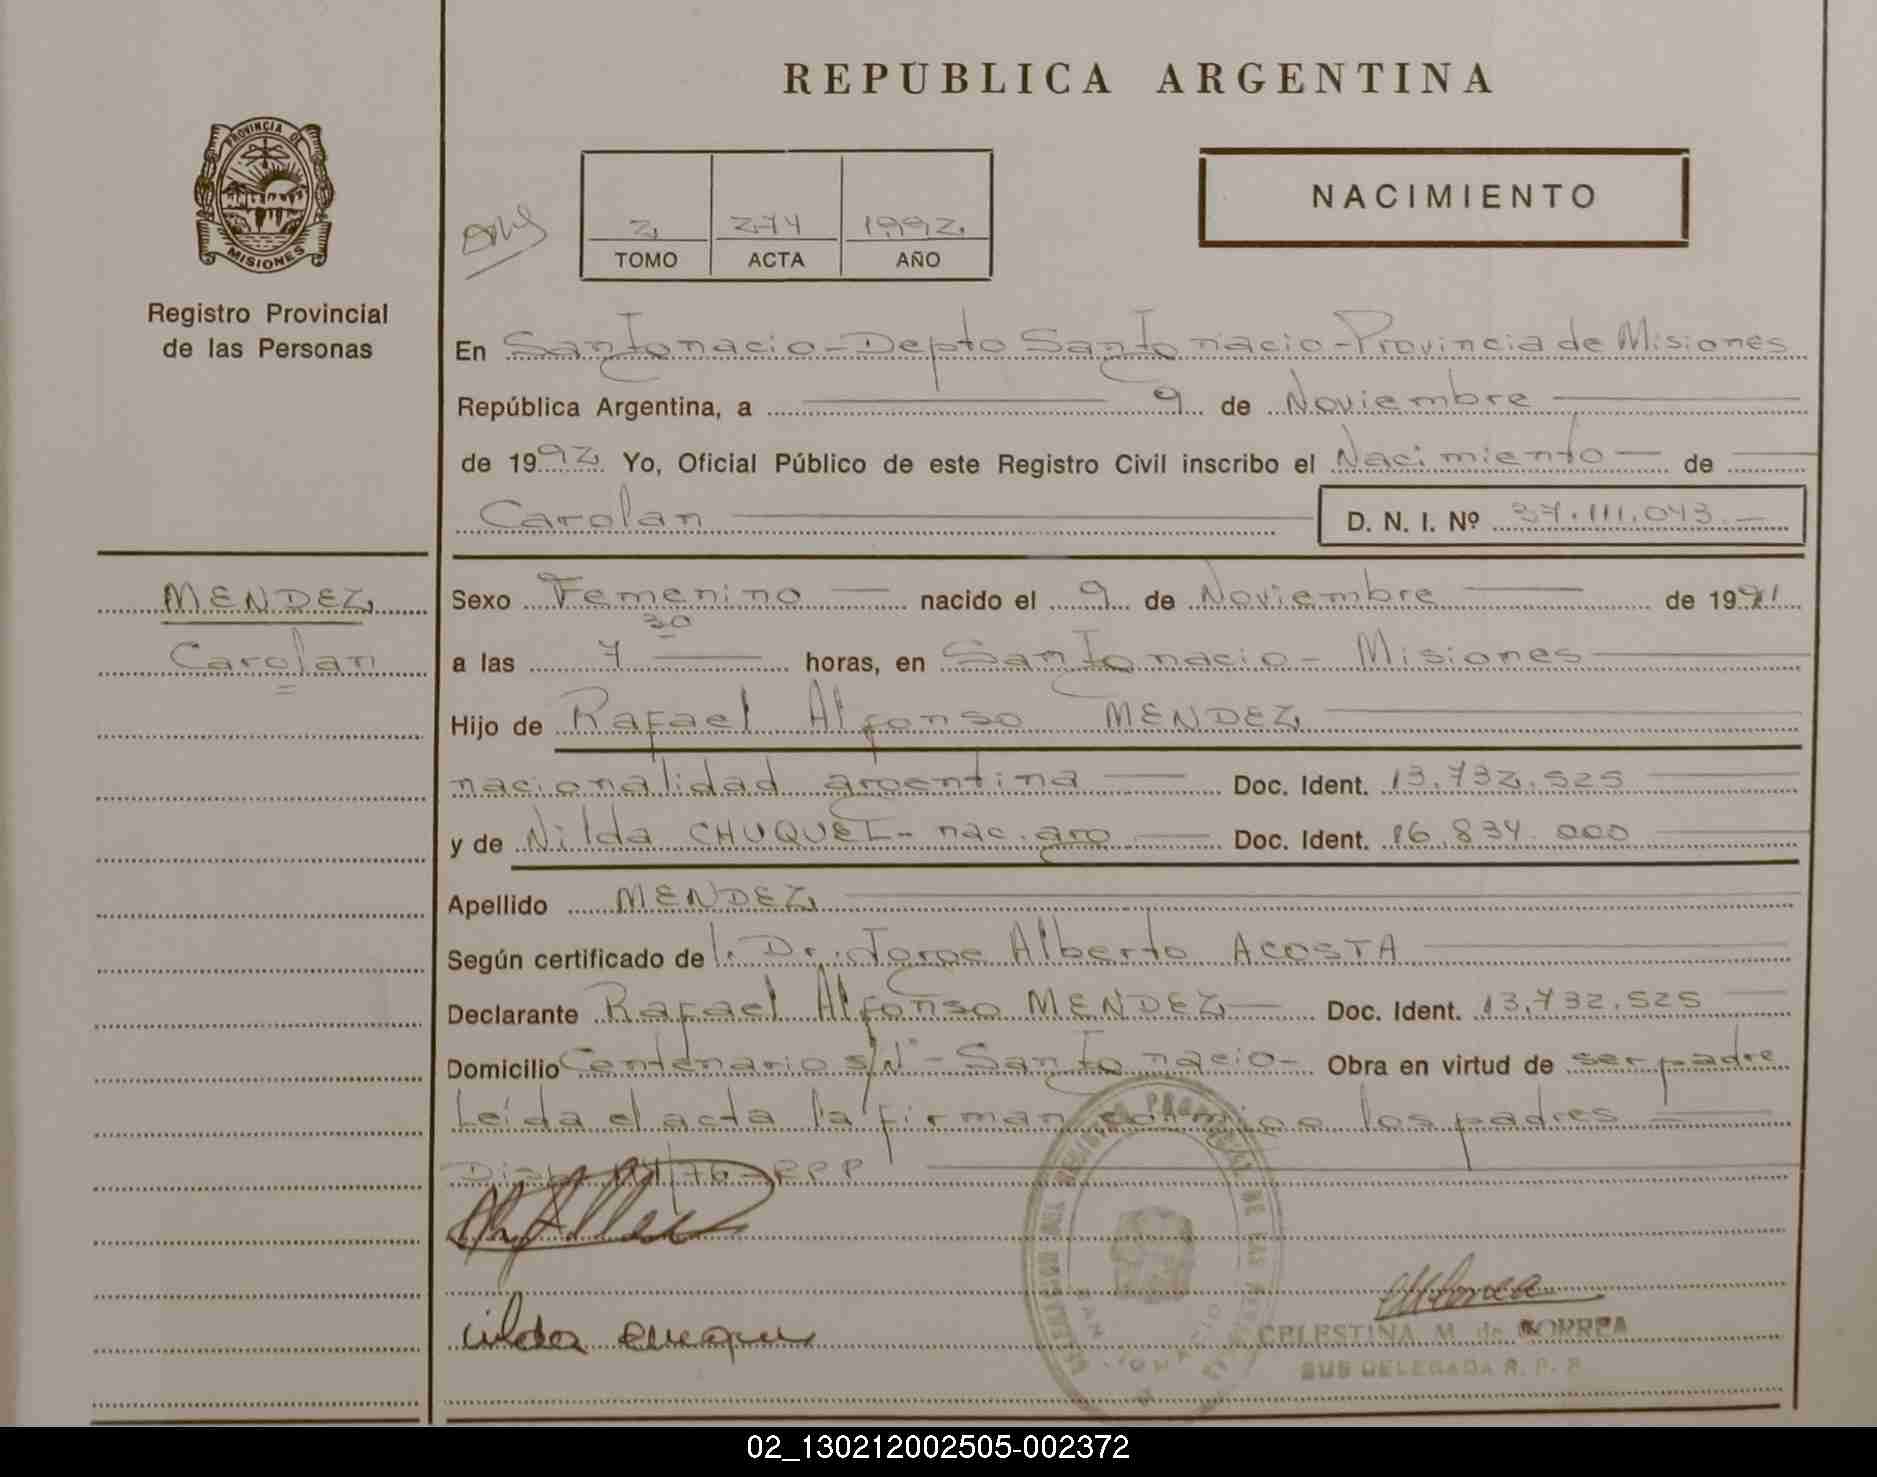 REPUBLICA ARGENTINA
PROVINCIA DE
MISIONES
Registro Provincial
de las Personas
NACIMIENTO
2 274 1992
TOMO ACTA AÑO
En San Ignacio - Depto San Ignacio - Provincia de Misiones
República Argentina, a 9 de Noviembre
de 1992 Yo, Oficial Público de este Registro Civil inscribo el Nacimiento de
Carolan D. N. I. Nº 37.111.043.-
MENDEZ
Carolan
Sexo Femenino nacido el 9 de Noviembre de 1991
a las 7 30 horas, en San Ignacio - Misiones
Hijo de Rafael Alfonso MENDEZ
nacionalidad argentina Doc. Ident. 13.732.525
y de Nilda CHUQUEL - nac. arg Doc. Ident. 16.834.000
Apellido MENDEZ
Según certificado del Dr. Jorge Alberto ACOSTA
Declarante Rafael Alfonso MENDEZ Doc. Ident. 13.732.525
Domicilio Centenario s/Nº - San Ignacio - Obra en virtud de ser padre
Leída el acta la firman conmigo los padres
Disp. /76 - RPP
CELESTINA M. de CORREA
SUB DELEGADA R. P. P.
02_130212002505-002372